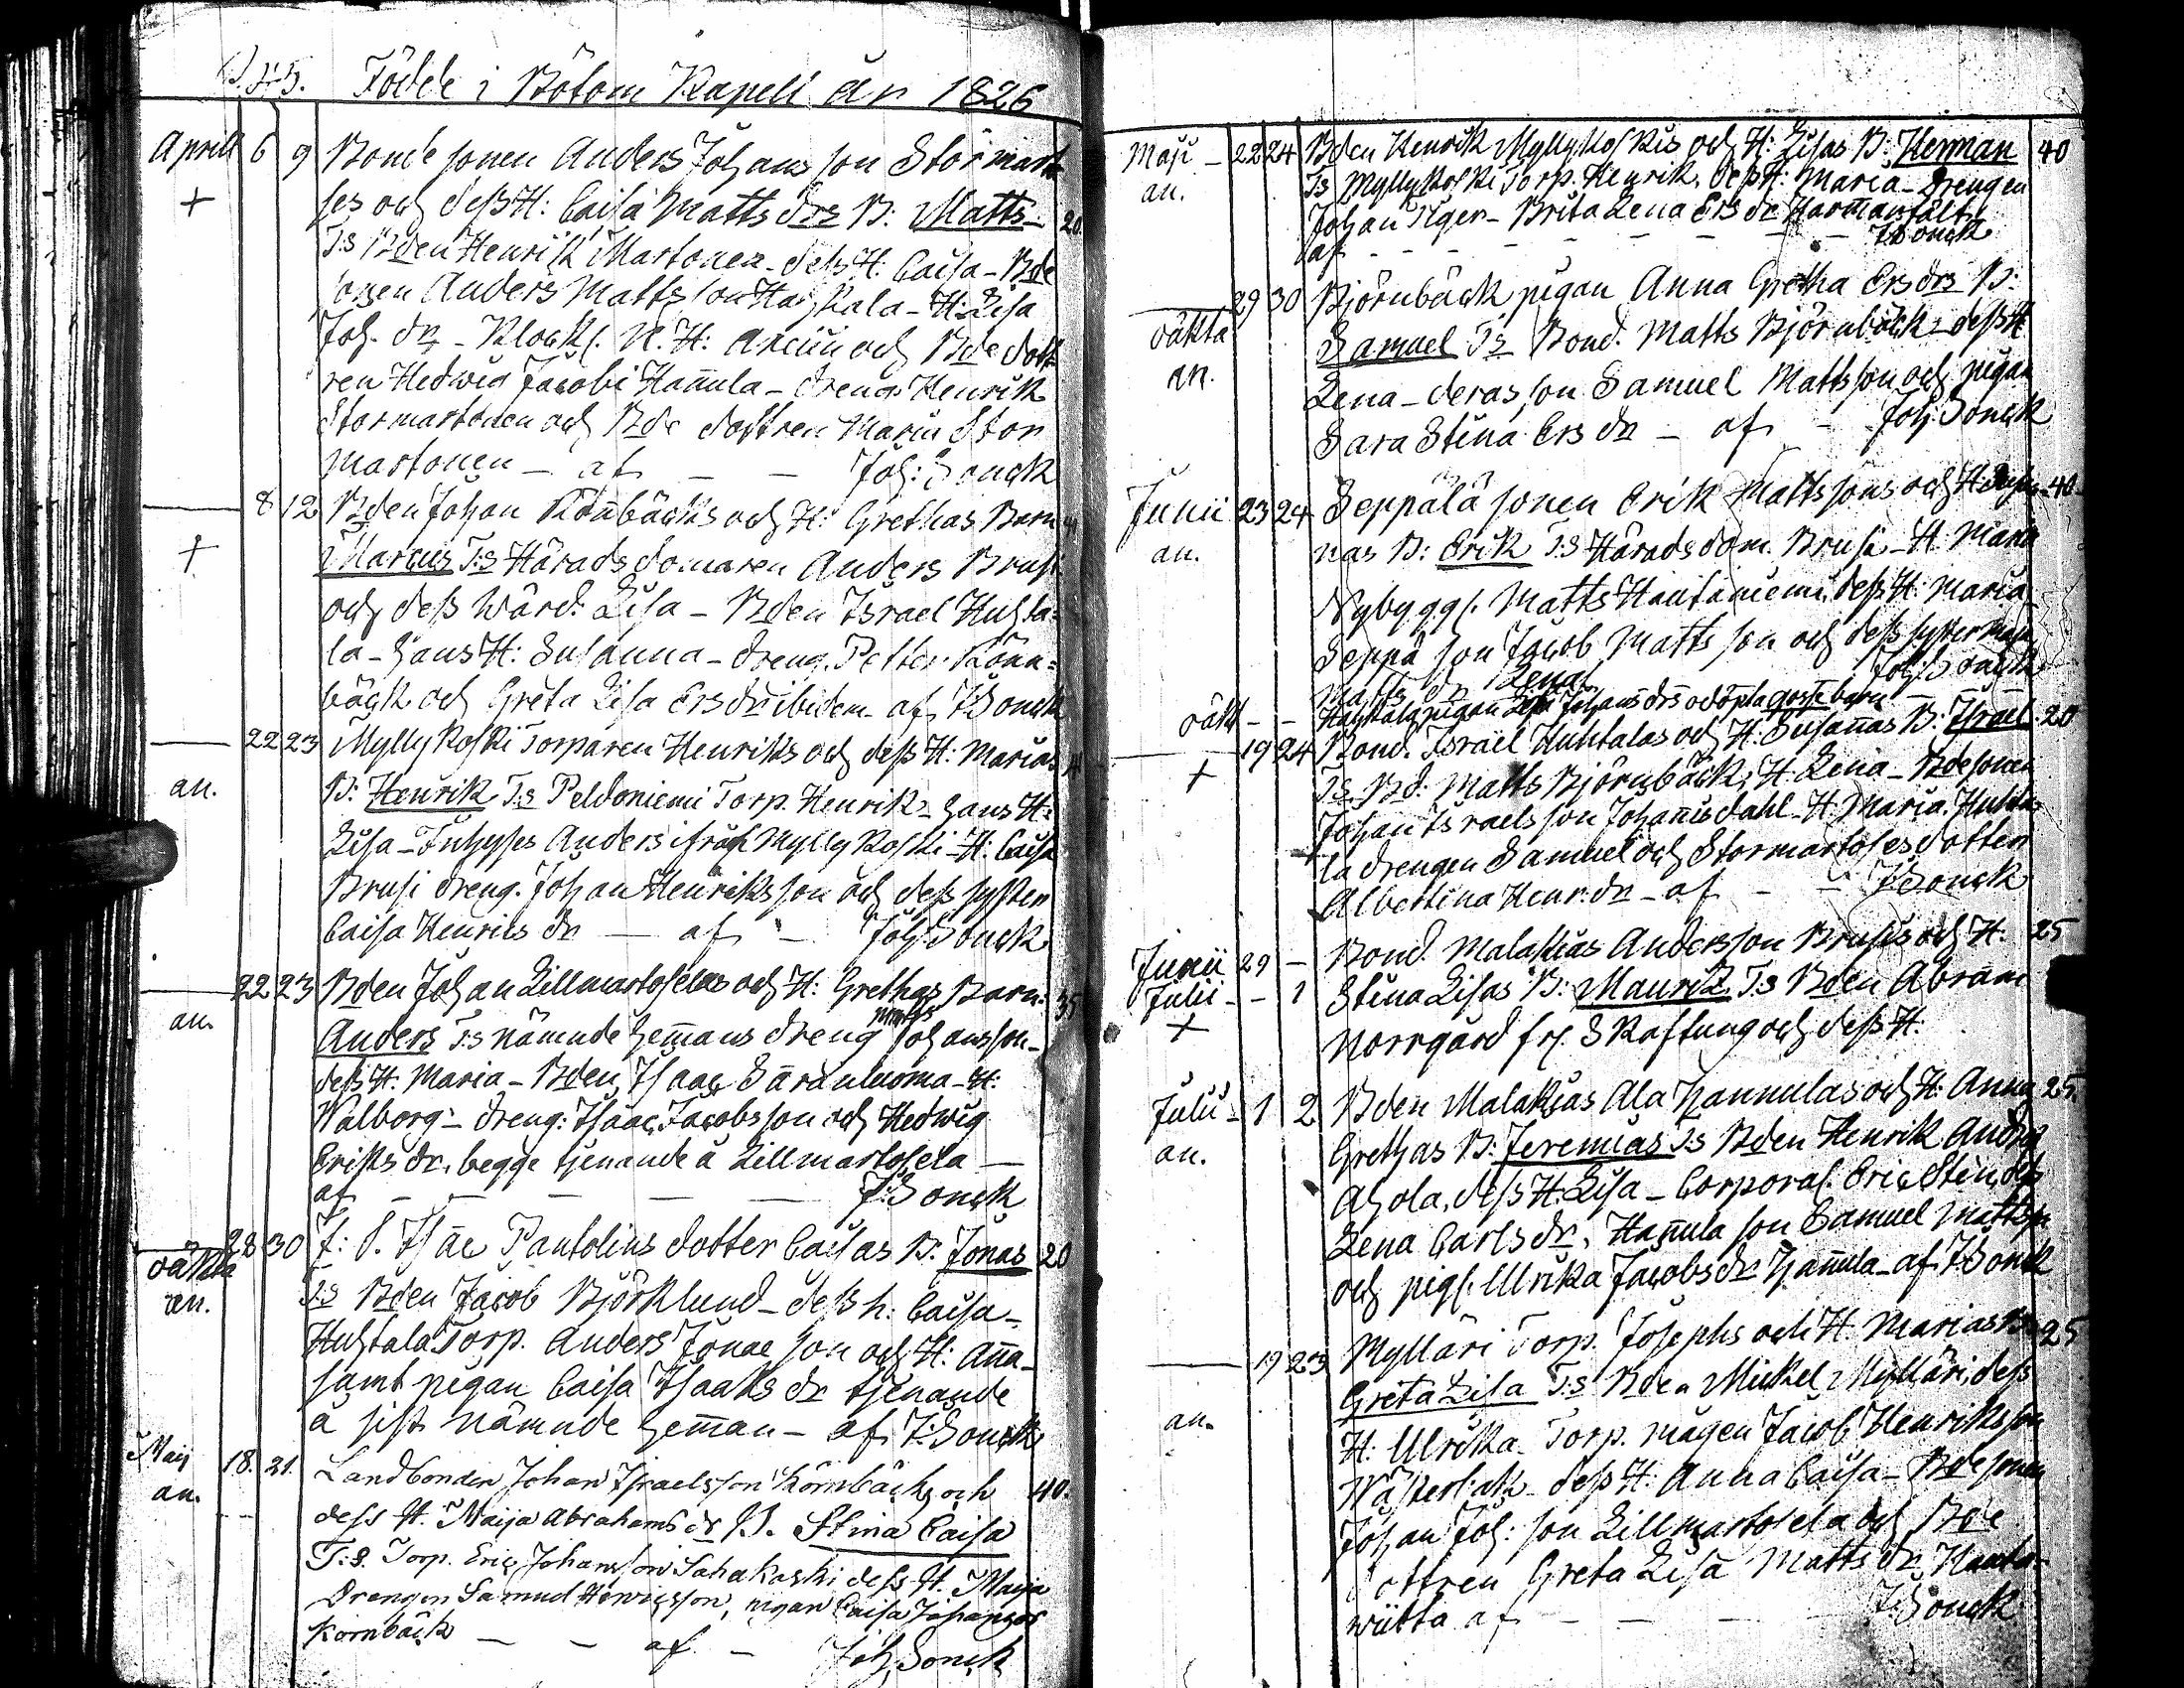 Födde i Bötom Kapell år 1826
Aprill 6 9 Bonde sonen Anders Johans son Stormarto
+ ses och dess H: Caisa Matts drs B: Matts 20.
T:s Bden Henrik Martonen - dess H: Caisa - Bde
sonen Anders Matts son Haykala - H: Lisa
Joh. dr - Klock. N. H: Arciin och Bde dott
ren Hedwig Jacobi Hannula - dreng Henrik
Stormartonen och Bde dottren Maria Stor
martonen - af - - Joh: Sonck
8 12 Bden Johan Rönnbäcks och H: Grethas Barn
+ Marcus T:s Häradsdomaren Anders Brusi
och dess Wärd: Lisa - Bden Israel Huhta-
la - hans H: Susanna - dreng. Petter Rönn-
bäck och Greta Lisa Ers dr ibidem - af J:Sonck
22 23 Myllykoski Torparen Henriks och dess H: Marias
an. B: Henrik T:s Peldoniemi Torp. Henrik - hans H:
Lisa - Inhyses Anders ifrån Myllykoski - H: Caisa
Brusi dreng. Johan Henriks son och dess syster
Caisa Henrics dr - af - Joh: Sonck
22 23 Bden Johan Lillmartoselas och H: Grethas Barn 35
an. Anders T:s nämnde hemans dreng Matts Johansson -
dess H: Maria - Bden Isaac Säranluoma - H:
Walborg - dreng: Isaac Jacobsson och Hedwig
Eriks dr, begge tjenande å Lillmartosela -
af - - - - J:Sonck
28 30 f: S. Isac Pantolins dotter Caisas B: Jonas 20
oäkta T:s Bden Jacob Björklund - dess h: Caisa -
an. Huhtala Torp. Anders Jonae son och H: Anna -
samt pigan Caisa Isaaks dr tjenande
å sist nämnde heman - af J:Sonck
Maij 18. 21. Landbonden Johan Israelsson Körnbäcks och 40.
an. dess H. Maija Abrahams dr B. Stina Caisa
T:s. Torp. Eric Johansson Sahakoski dess H. Maija
Drengen Samuel Henricsson, pigan Caisa Johansdr
Körnbäck - - af - Joh Sonck
Maji - 22 24 Bden Henrik Myllykoskis och H: Lisas B: Herman 40
an. T:s Myllykoski Torp. Henrik, dess H: Maria - Drengen
Johan Tiger - Brita Lena Ers dr Harmansält
af - - - - - J Sonck
29 30 Björnbäck pigan Anna Gretha Ers drs B:
oäkta Samuel T:s Bond. Matts Björnbäck - dess H:
an. Lena - deras son Samuel Mattsson och pigan
Sara Stina Ers dr - af - Joh: Sonck
Junii 23 24 Seppälä sonen Erik Matts sons och H: 40.
an. nas B: Erik T:s Häradsdom. Brusi - H: Maria
Nybygg. Matts Hautaniemi dess H: Maria
Seppä son Jacob Matts son och dess syster
Matts dr Lena Joh: Sonck
oäkt - - Haykala pigan Lisa Johans drs odöpta gosse barn
19 24 Bond. Israel Huhtalas och H: Susannas B: Israel 20
+ T:s Bd: Matts Björnbäck, H: Lena - Bde sonen
Johan Israels son Johannisdahl - H: Maria. Huhta
la drengen Samuel och Stormartoses dotter
Albertina Henr: dr - af - - J:Sonck
Junii 29 - Bond. Malakias Andersson Brusis och H: 25
Julii - - 1 Stina Lisas B: Mauritz T:s Bden Abram
+ Norrgård fr. Skaftung och dess H:
Julii - 1 2 Bden Malakias Ala Hannulas och H: Anna 25.
an. Grethas B: Jeremias T:s Bden Henrik Andra
Ahola, dess H: Lisa - Corporal. Eric Sten, dess
Lena Carls dr, Hannula son Samuel Mattss
och pig. Ulrika Jacobs dr Hannula - af J:Sonck
19 23 Mylläri Torp. Josephs och H: Marias B: 25
an. Greta Lisa T:s Bden Mickel Mylläri, dess
H: Ulrika - Torp. mågen Jacob Henriksson
Wästerbak - dess H: Anna Caisa - Bde sonen
Johan Joh: son Lillmartosela och Bde
dottren Greta Lisa Matts dr Hauta-
wiitta af - - - J:Sonck